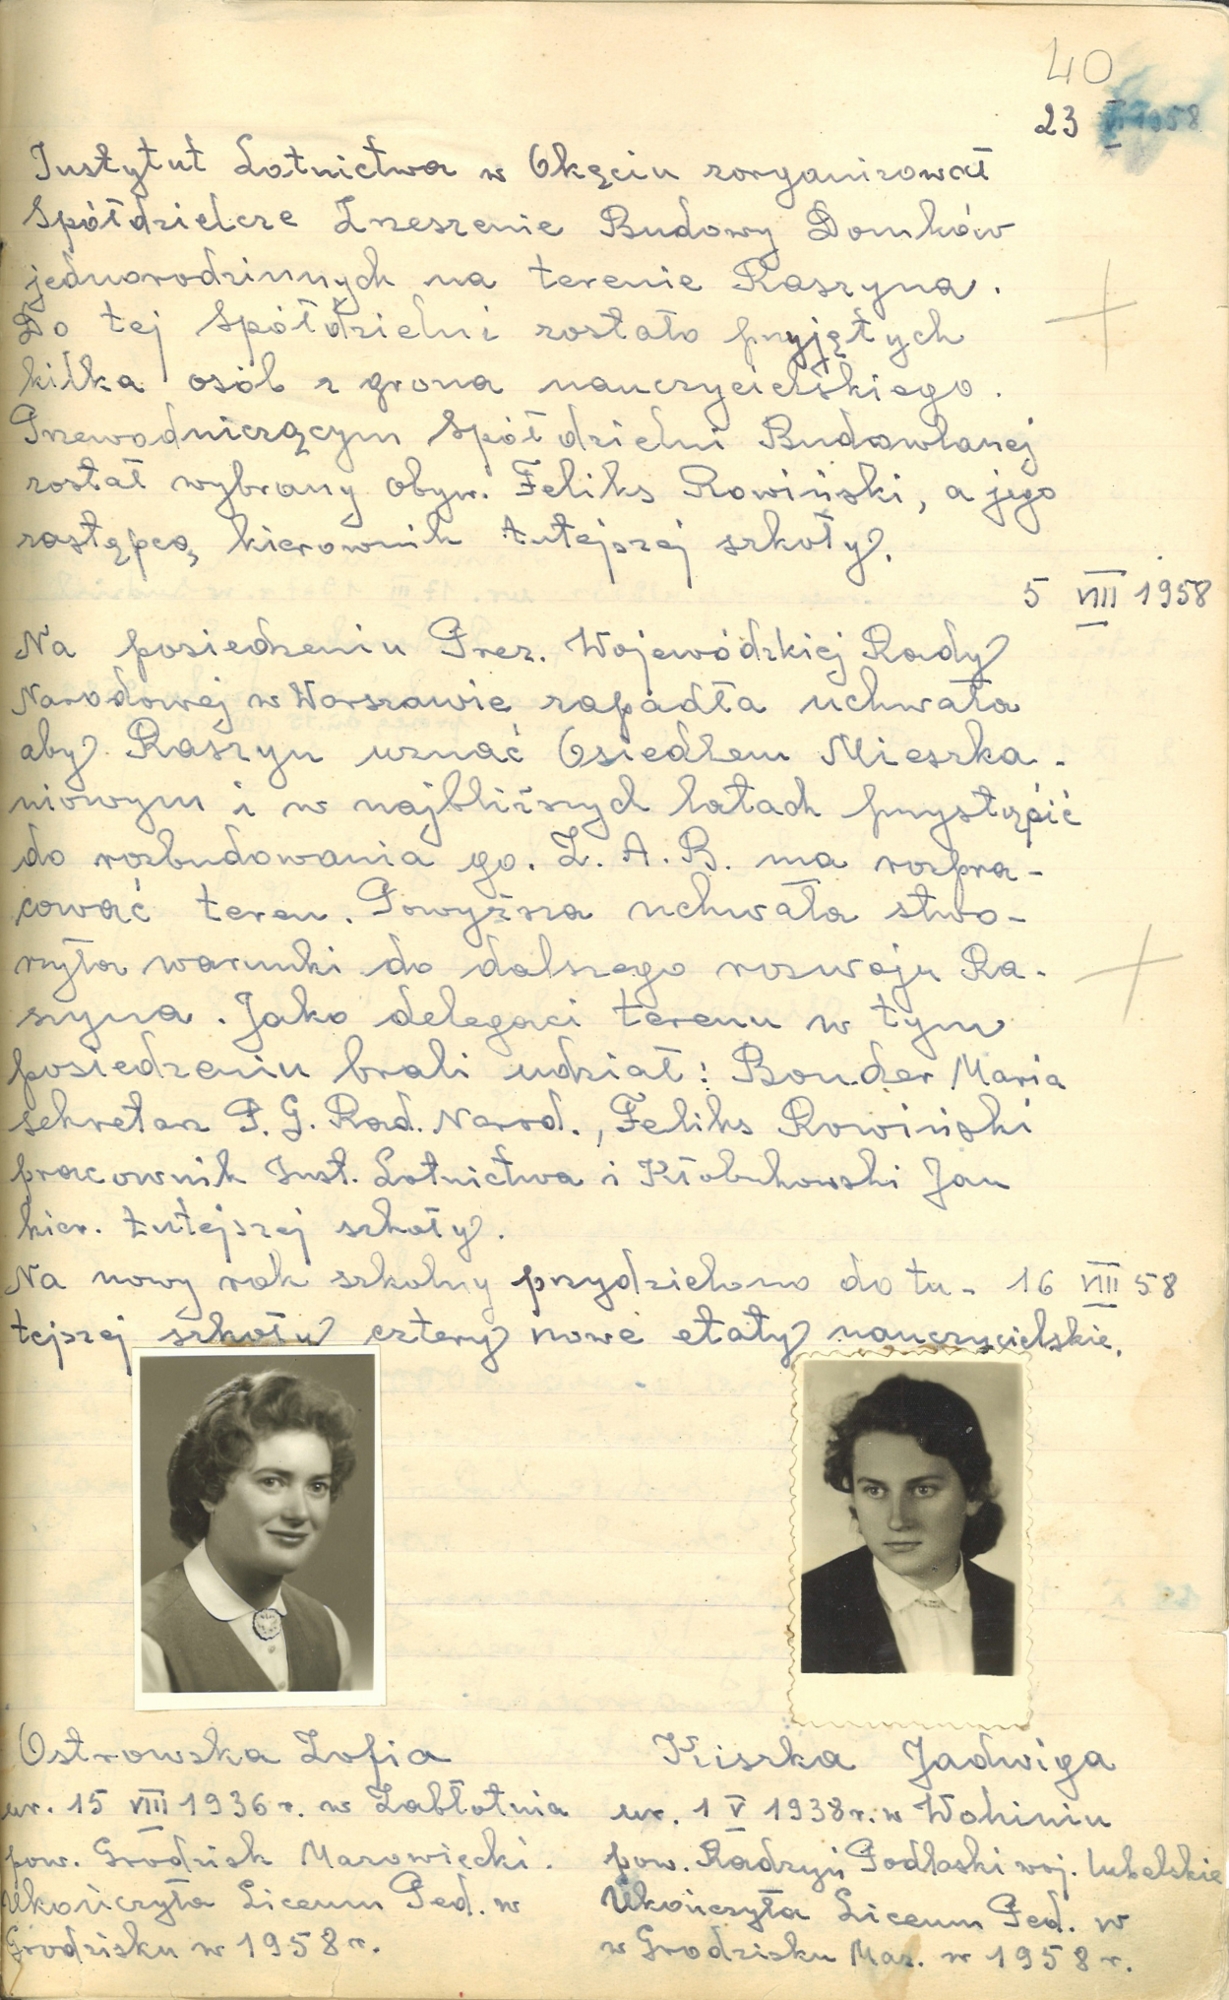 40
23
1958
Instytut Lotnictwa w Okęciu zorganizował
Spółdzielcze Zrzeszenie Budowy Domków
jednorodzinnych na terenie Raszyna.
Do tej Spółdzielni zostało przyjętych
kilka osób z grona nauczycielskiego.
Przewodniczącym Spółdzielni Budowlanej
został wybrany obyw. Feliks Rowiński, a jego
zastępcą kierownik tutejszej szkoły.
5 VIII 1958
Na posiedzeniu Prez. Wojewódzkiej Rady
Narodowej w Warszawie zapadła uchwała
aby Raszyn uznać Osiedlem Mieszka-
niowym i w najbliższych latach przystąpić
do rozbudowania go. Z. A. B. ma rozpra-
cować teren. Powyższa uchwała stwo-
rzyła warunki do dalszego rozwoju Ra-
szyna. Jako delegaci terenu w tym
posiedzeniu brali udział: Bonder Maria
sekretarz P. G. Rad. Narod., Feliks Rowiński
pracownik Inst. Lotnictwa i Kłobukowski Jan
kier. tutejszej szkoły.
Na nowy rok szkolny przydzielono do tu- 16 VIII 58
tejszej szkoły cztery nowe etaty nauczycielskie.
Ostrowska Zofia
ur. 15 VIII 1936 r. w Zabłotnia
pow. Grodzisk Mazowiecki.
Ukończyła Liceum Ped. w
Grodzisku w 1958 r.
Kiszka Jadwiga
ur. 1 V 1938 r. w Wohiniu
pow. Radzyń Podlaski woj. lubelskie
Ukończyła Liceum Ped. w
w Grodzisku Maz. w 1958 r.